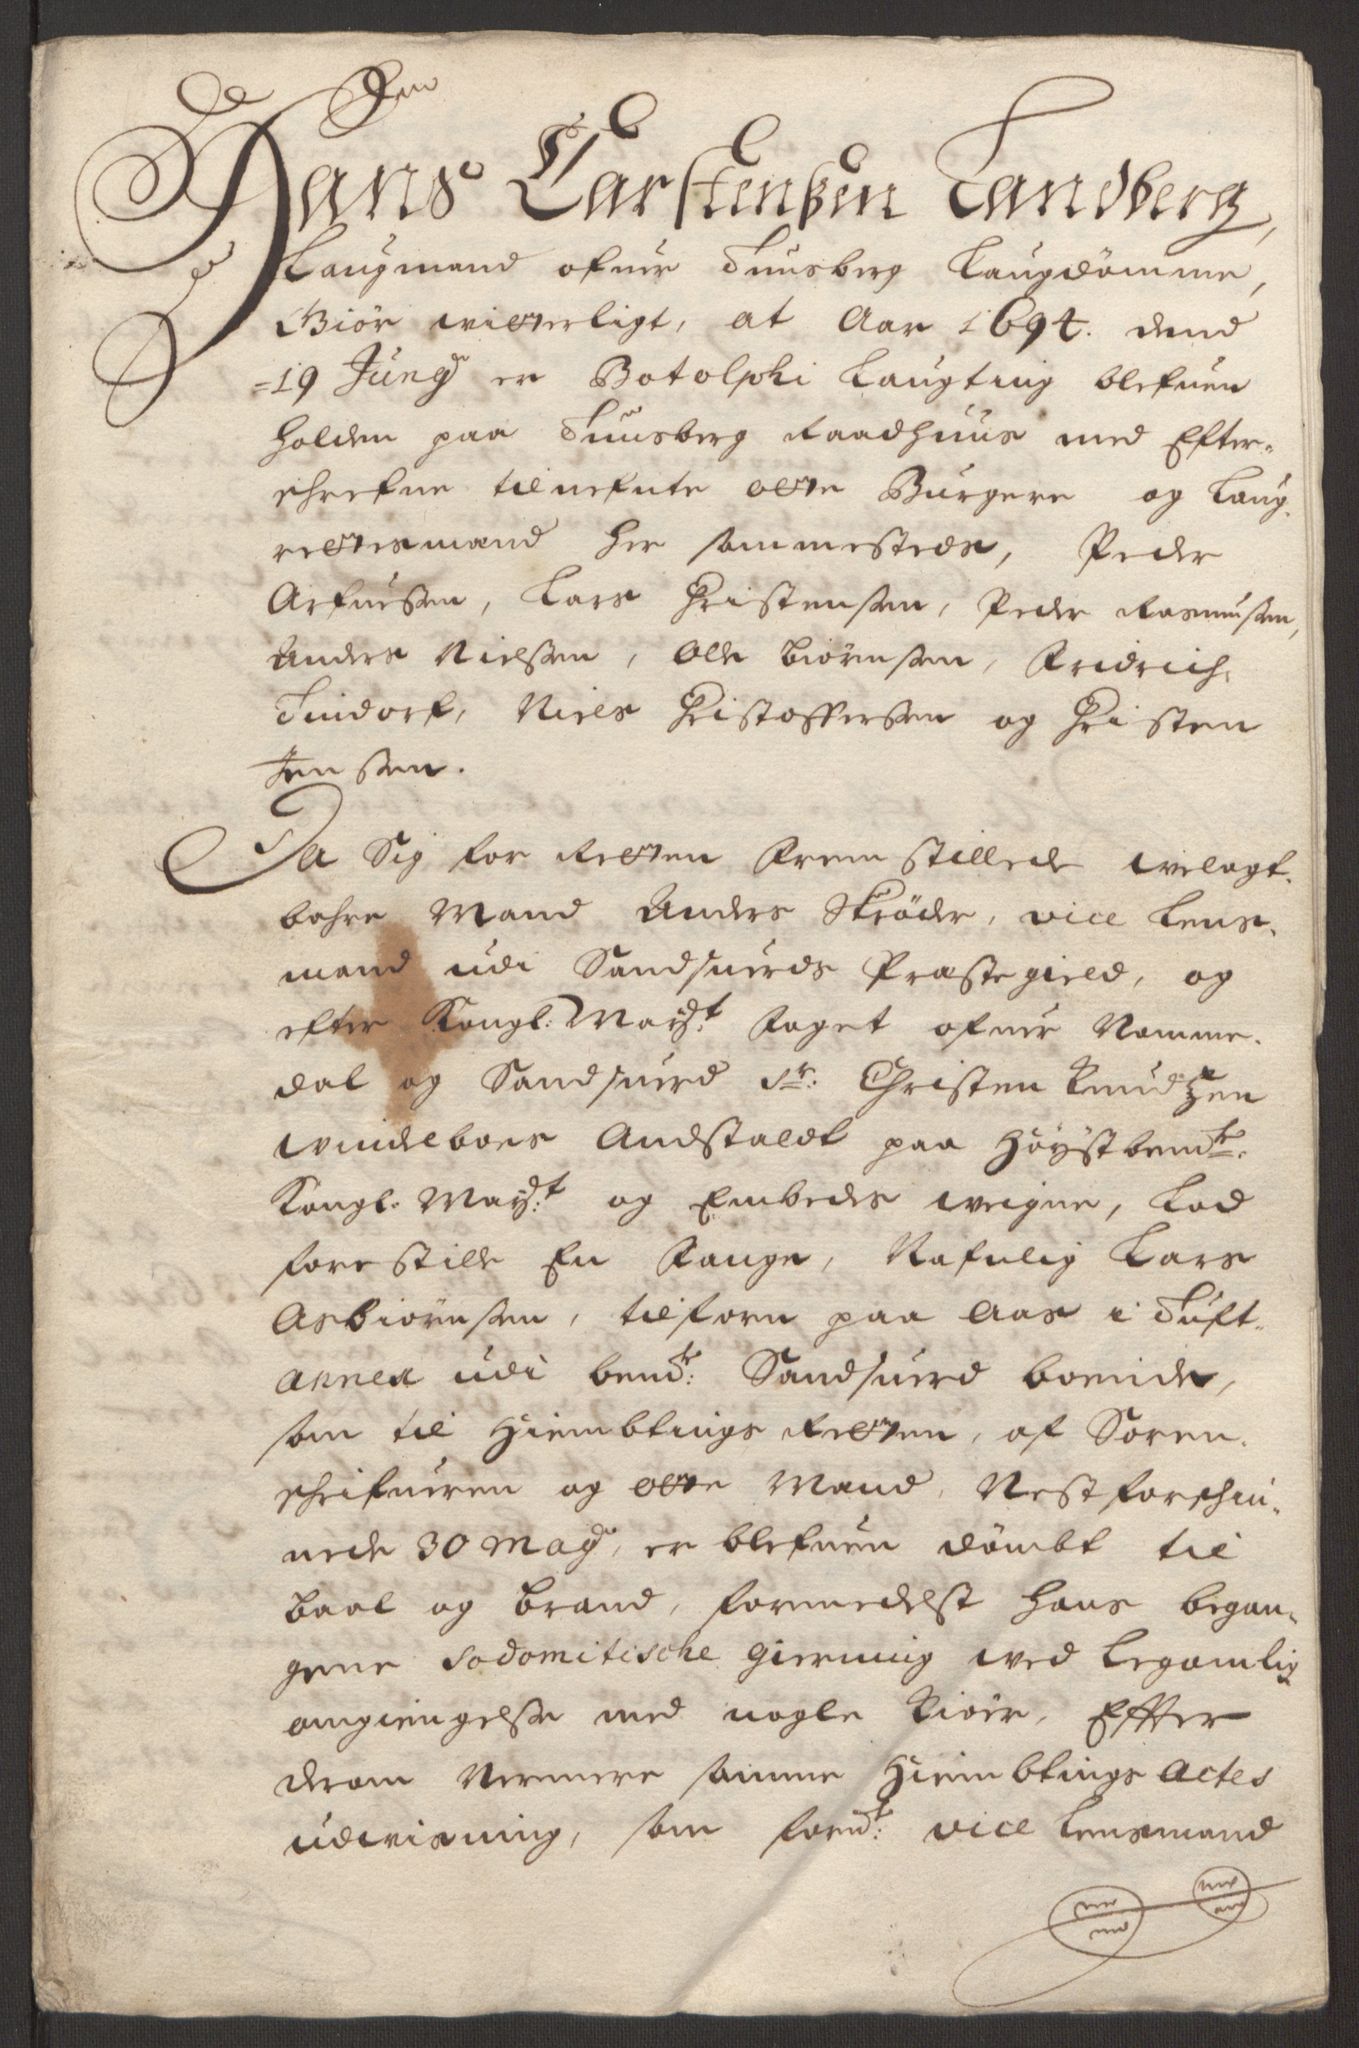 Hans Carstensen Tandberg,
Laugmand ofuer Tunsberg Laugdömme,
Giör witterligt, at Aar 1694. dend
=19 Junÿ er Botolphi Laugting blefuen
holden paa Tunsberg Raadhuus med Efter-
schrefne tilnefnte otte Burgere og Laug-
rettesmænd her sammesteds, Peder
Arfuesen, Lars Christensen, Peder Rasmusen,
Anders Nielsen, Ole Biörnsen, Fridrich
Tindorf, Niels Christoffersen og Christen
Jensen.
Da Sig for Retten Fremstillede welagt-
bahre Mand Anders Skröder, vice Lens-
mand udi Sandsuerds Præstegield, og
efter Kongl: Maÿt: Foget ofuer Numme-
dal og Sandsuerd Sr: Christen Knudtzen
windelboes Andstaldt paa Höÿstbemte:
Kongl. Maÿt: og Embeds weigne, Lod
forestille En Fange, Nafnlig Lars
Asbiörnsen, tilforn paa Aas i Tuft-
annex udi bemte: Sandsuerd boende,
som til Hiembtings Retten, af Soren-
schrifueren og otte Mænd, Nestforschin-
nede 30 Maÿ, er blefuen dömbt til
baal og brand, formedelst hans began-
gene Sodomitische gierning wed Legomlig
omgiengelse med nogle Kiör, Effter
derom Nermere samme Hiembtings Actes
udwisning, som forne: vice Lensmand